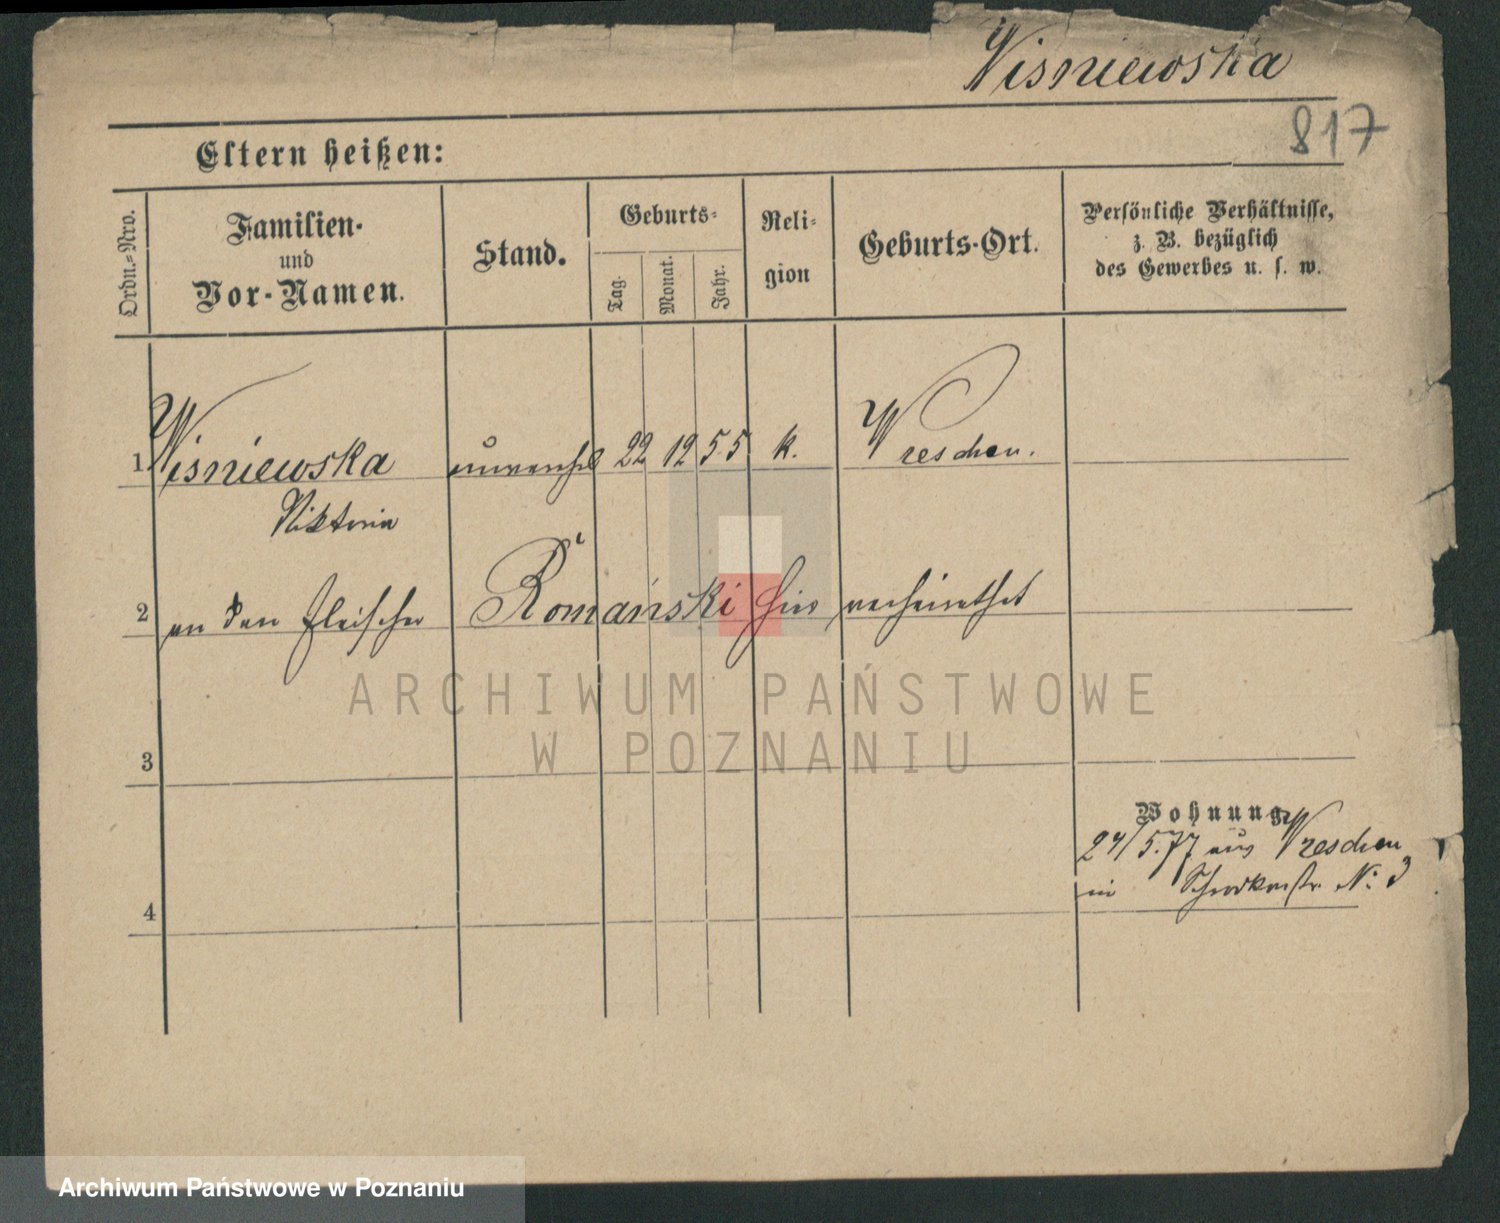 Wisniewska
817
Eltern heißen:
Ordn.=Nro.
Familien-
und
Vor-Namen.
Stand.
Geburts=
Tag.
Monat.
Jahr.
Reli=
gion
Geburts-Ort.
Persönliche Verhältnisse,
z. B. bezüglich
des Gewerbes u. s. w.
1 Wisniewska unverehel 22 12 55 k. Wreschen.
Viktoria
2 an den Fleischer Romański hier verheirathet
ARCHIWUM PAŃSTWOWE
W POZNANIU
3
Wohnung
24/5.77 aus Wreschen
in Schrodkaerstr. No: 3
4
Archiwum Państwowe w Poznaniu